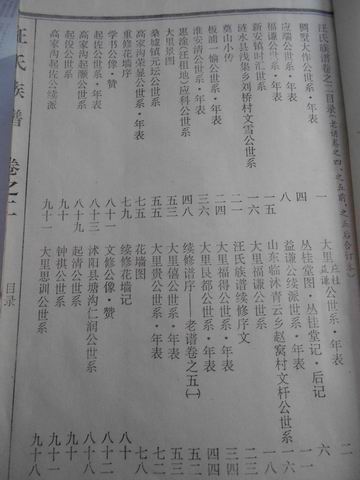 汪氏族谱卷之二目录
稠墅大作公世系·年表 一
应瑞公世系·年表 四
福谦公世系·年表 八
新安镇时汇世系 一五
涟水县浅集乡刘桥村文雪公世系 一六
奠山小传 二一
板浦一愉公世系·年表 二四
淮安清公世系·年表 三六
思溢(迁祖地)应科公世系·年表 四八
大里景图 五三
桑墟镇元坛公世系 五五
高家沟荣显公世系·年表 五五
重修花墙序 七九
学书公像·赞 八一
起佐公世系·年表 八三
高家沟起灏公世系·年表 八九
起浚公世系 九十
高家沟起佐公续派 九十一
大里 公世系·年表 二
丛桂堂图·丛桂堂记·后记 六
益谦公续派世系·年表 一一
山东临沭青云乡赵窝村文杆公世系 一六
大里福谦公世系 一八
汪氏族谱续修序文 二三
大里福得公世系·年表 三四
大里艮都公世系·年表 四四
续修谱序——老谱卷之五(一) 五二
大里僖公世系·年表 五四
大里贵公世系·年表 七二
花墙图 七八
续修花墙记 八十
文修公像·赞 八二
沭阳县塘沟仁润公世系 八八
起清公世系 九十
钟祺公世系 九十
大里思训公世系 九十八
汪氏族谱 卷之二 目录